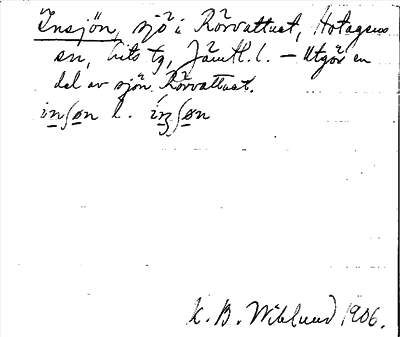 Insjön, sjö i Rörvattnet, Hotagens
sn, Lits tg, Jämtl. l. — Utgör en
del av sjön Rörvattnet.
inʃøn l. íŋʃøn
K. B. Wiklund 1906.